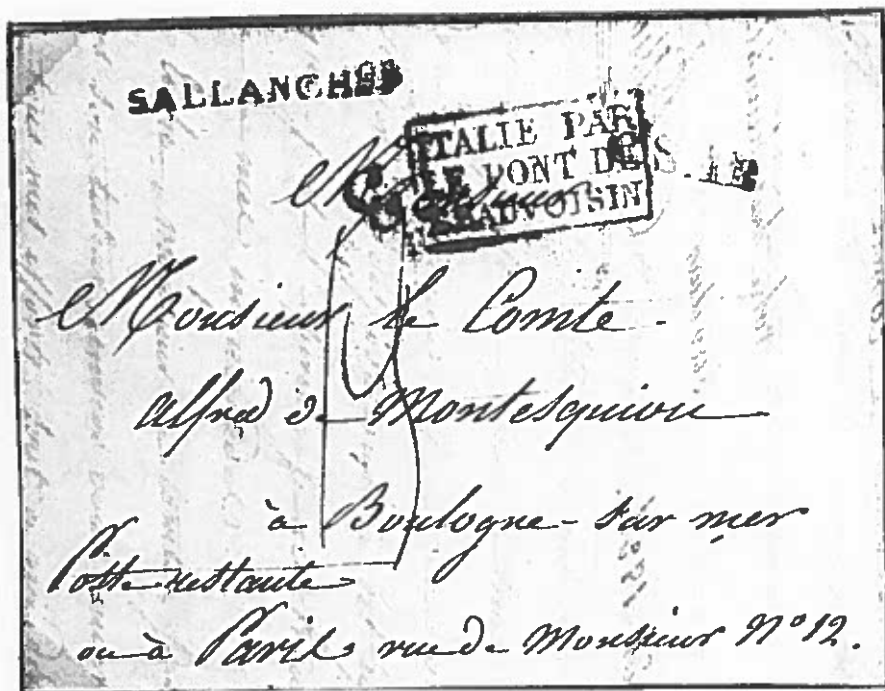 SALLANCHES
ITALIE PAR
LE PONT DE
BEAUVOISIN
Monsieur
Monsieur le Comte
Alfred de Montesquiou
à Boulogne-sur mer
Poste restante
ou à Paris rue de Monsieur N° 12.